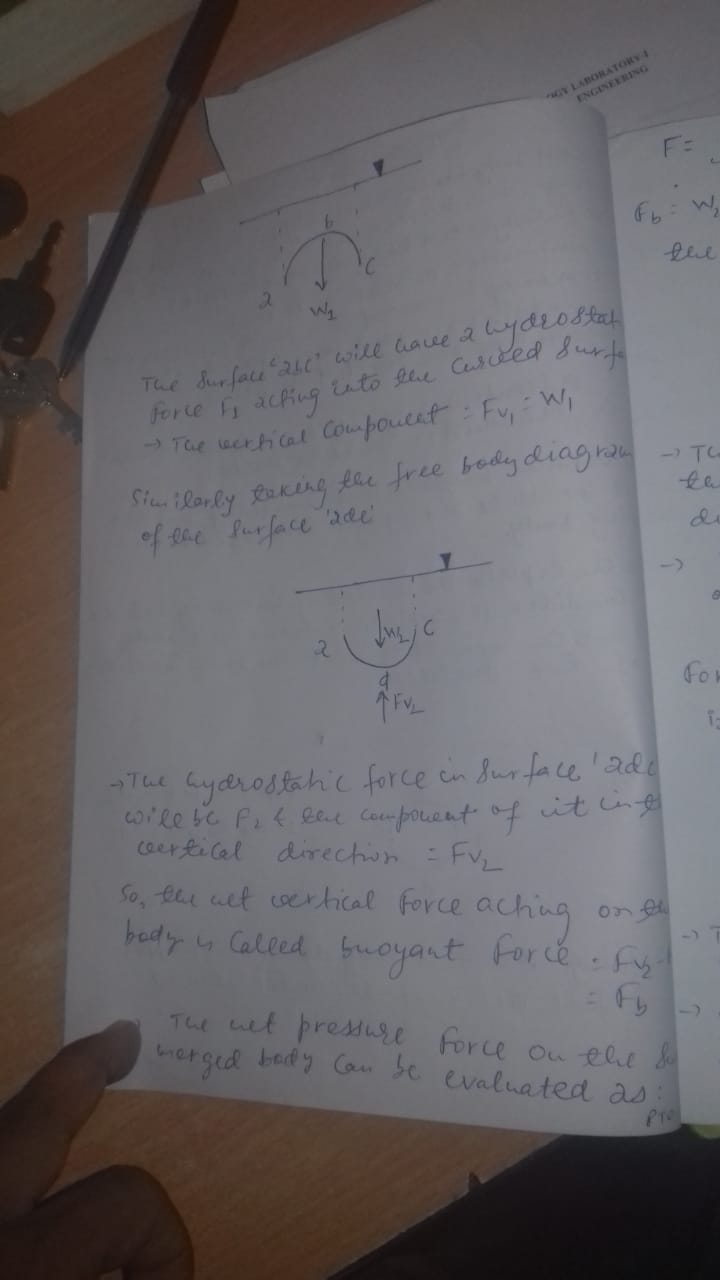 OGY LABORATORY-I
ENGINEERING
b
a
c
W1
The Surface 'abc' will have a hydrostat
force F1 acting into the curved Surfa
→ The vertical component = Fv1 = W1
Similarly taking the free body diagram
of the surface 'adc'
a
W2
c
d
Fv2
→ The hydrostatic force in surface 'adc
will be F2 & the component of it in t
vertical direction = Fv2
So, the net vertical force acting on th
body is called buoyant force = Fv2 -
= Fb
The net pressure force on the Su
merged body can be evaluated as:
PTO
F =
Fb = W2
the
→ Th
→
For
→ T
→